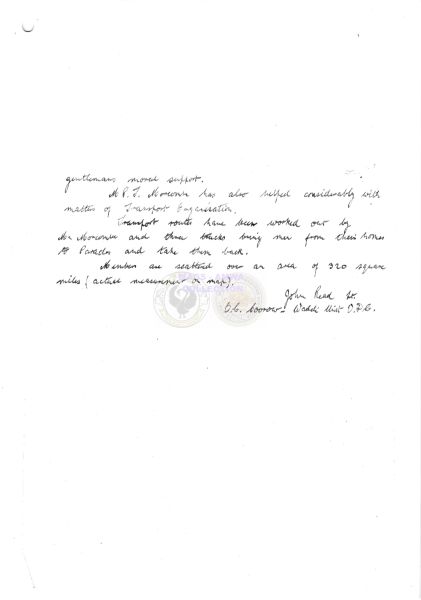 gentlemans moved support.
Mr P. J. Morcombe has also helped considerably with
matters of Transport Organisation.
Transport routes have been worked out by
Mr Morcombe and three trucks bring men from their homes
to Parades and take them back.
Members are scattered over an area of 320 square
miles (actual measurement on map).
John Read Lt.
O.C. Coorow - Waddi Unit V.D.C.